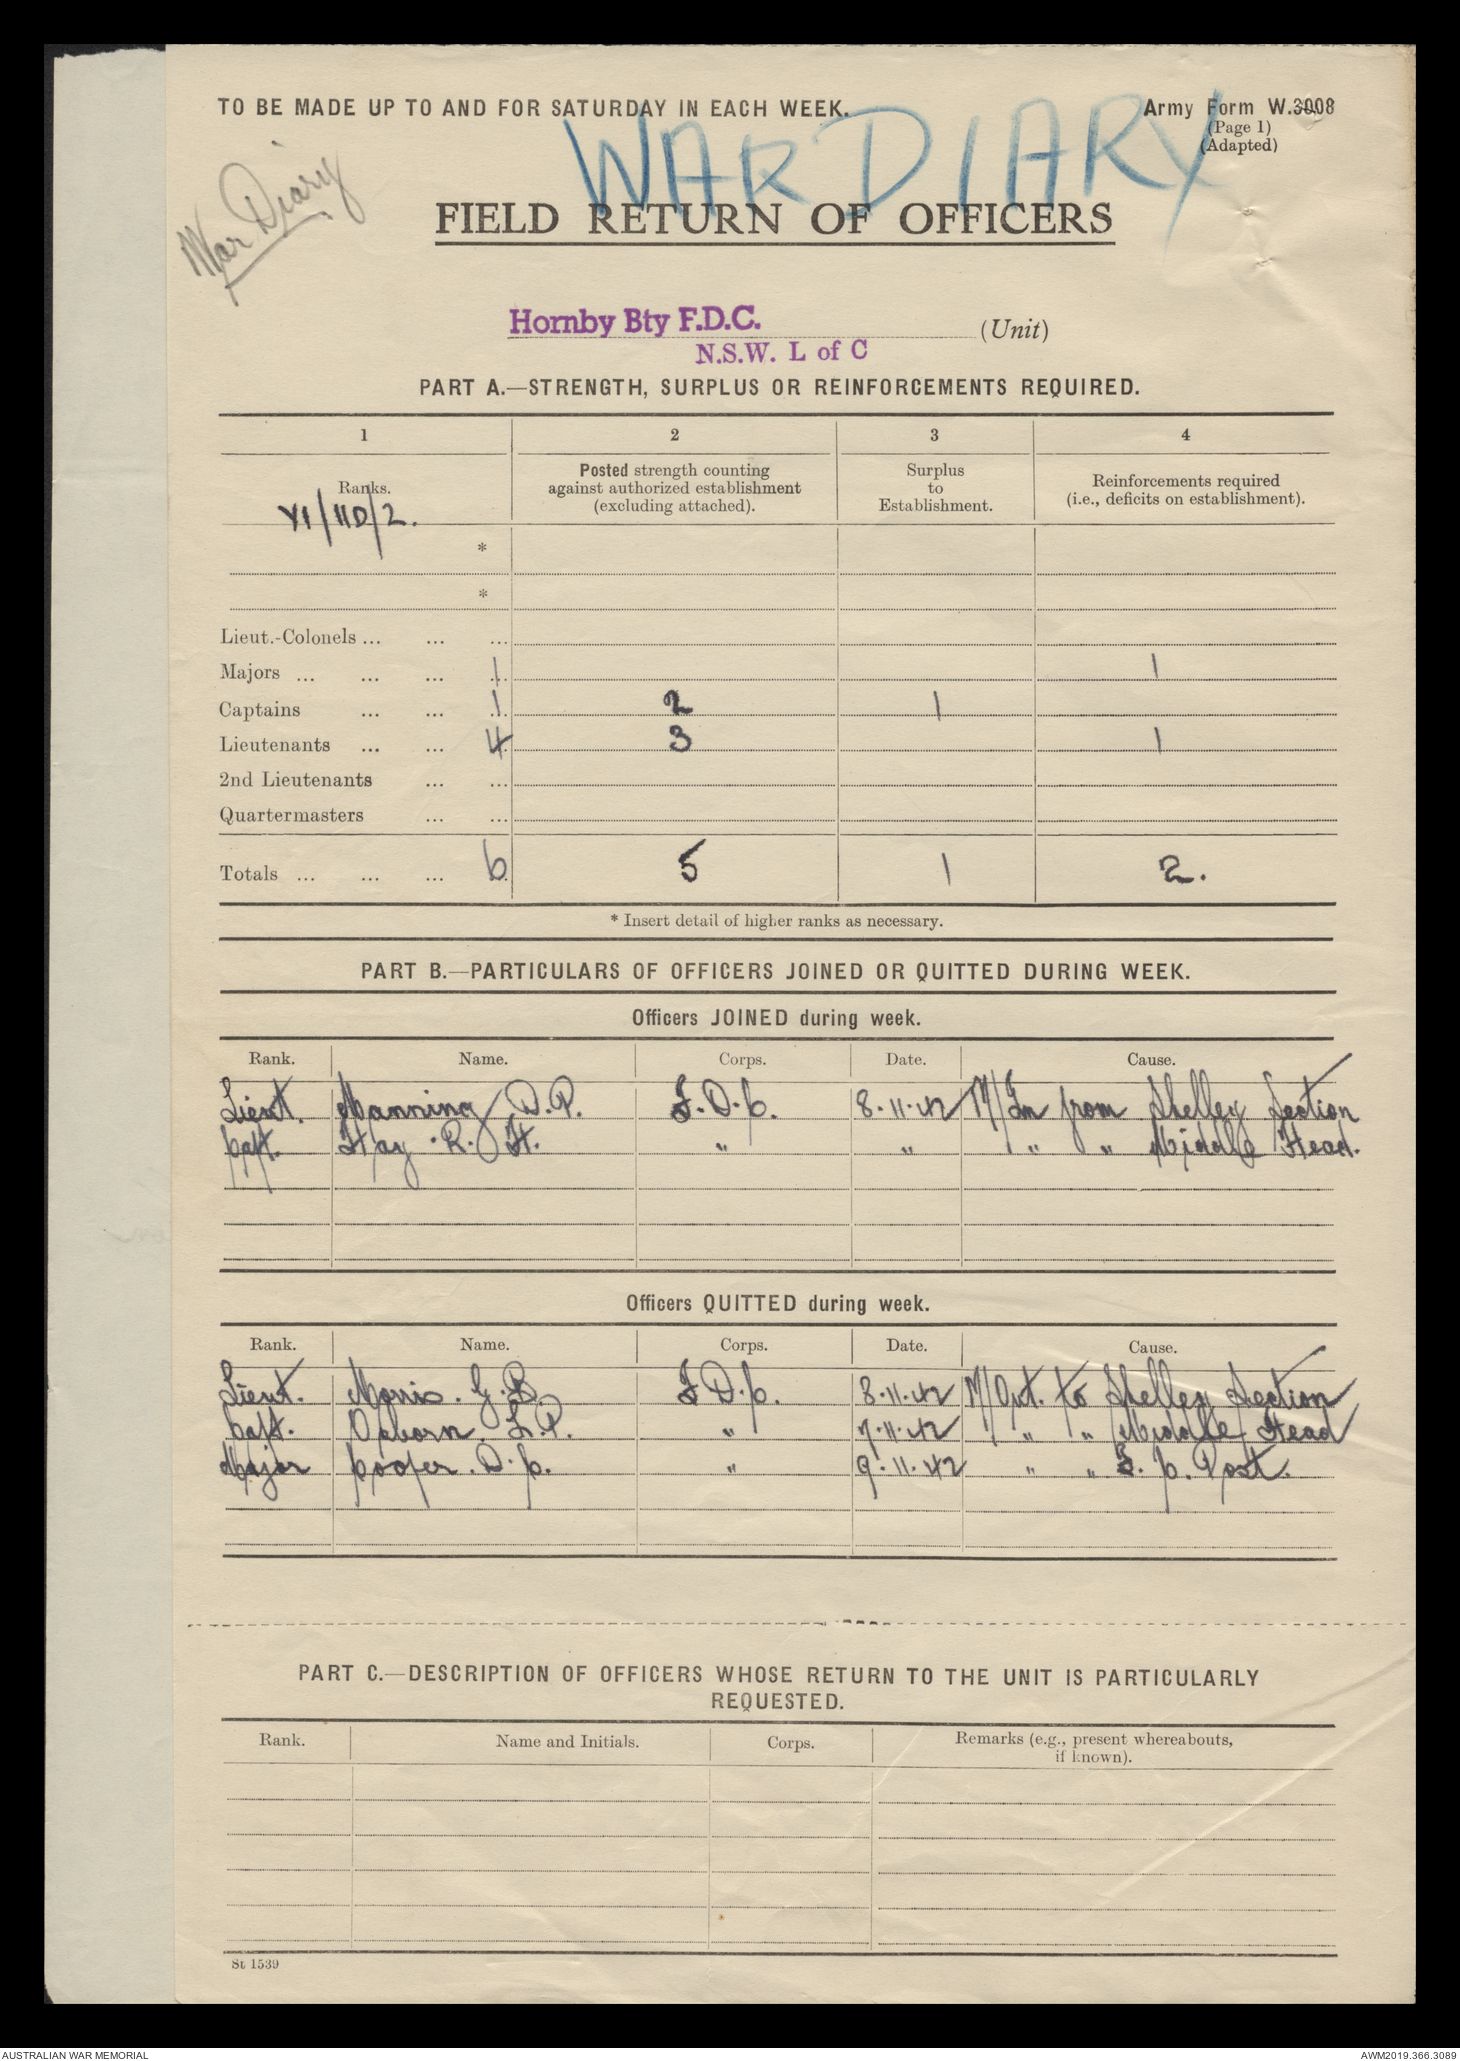 TO BE MADE UP TO AND FOR SATURDAY IN EACH WEEK.
Army Form W.3008
(Page 1)
(Adapted)
WAR DIARY
War Diary
FIELD RETURN OF OFFICERS
Hornby Bty F.D.C. (Unit)
N.S.W. L of C
PART A.—STRENGTH, SURPLUS OR REINFORCEMENTS REQUIRED.
1 2 3 4
Ranks. Posted strength counting against authorized establishment (excluding attached). Surplus to Establishment. Reinforcements required (i.e., deficits on establishment).
VI/11D/2.
*
*
Lieut.-Colonels ... ... ...
Majors ... ... ... 1 1
Captains ... ... 1 2 1
Lieutenants ... ... 4 3 1
2nd Lieutenants ... ...
Quartermasters ... ...
Totals ... ... ... 6 5 1 2.
* Insert detail of higher ranks as necessary.
PART B.—PARTICULARS OF OFFICERS JOINED OR QUITTED DURING WEEK.
Officers JOINED during week.
Rank. Name. Corps. Date. Cause.
Lieut. Manning D.P. F.D.C. 8.11.42 M/In from Shelley Section
Capt. Hay .R. H. " " " " Middle Head.
Officers QUITTED during week.
Rank. Name. Corps. Date. Cause.
Lieut. Morris. G.B. F.D.C. 8.11.42 M/Out. to Shelley Section
Capt. Osborn. L.P. " 7.11.42 " " Middle Head
Major Cooper. D.C. " 9.11.42 " " F. C. Post.
PART C.—DESCRIPTION OF OFFICERS WHOSE RETURN TO THE UNIT IS PARTICULARLY
REQUESTED.
Rank. Name and Initials. Corps. Remarks (e.g., present whereabouts, if known).
St 1539
AUSTRALIAN WAR MEMORIAL
AWM2019.366.3089